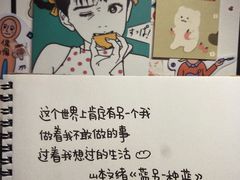 这个世界上肯定有另一个我
做着我不敢做的事
过着我想过的生活
山本文绪《蓝另一种蓝》